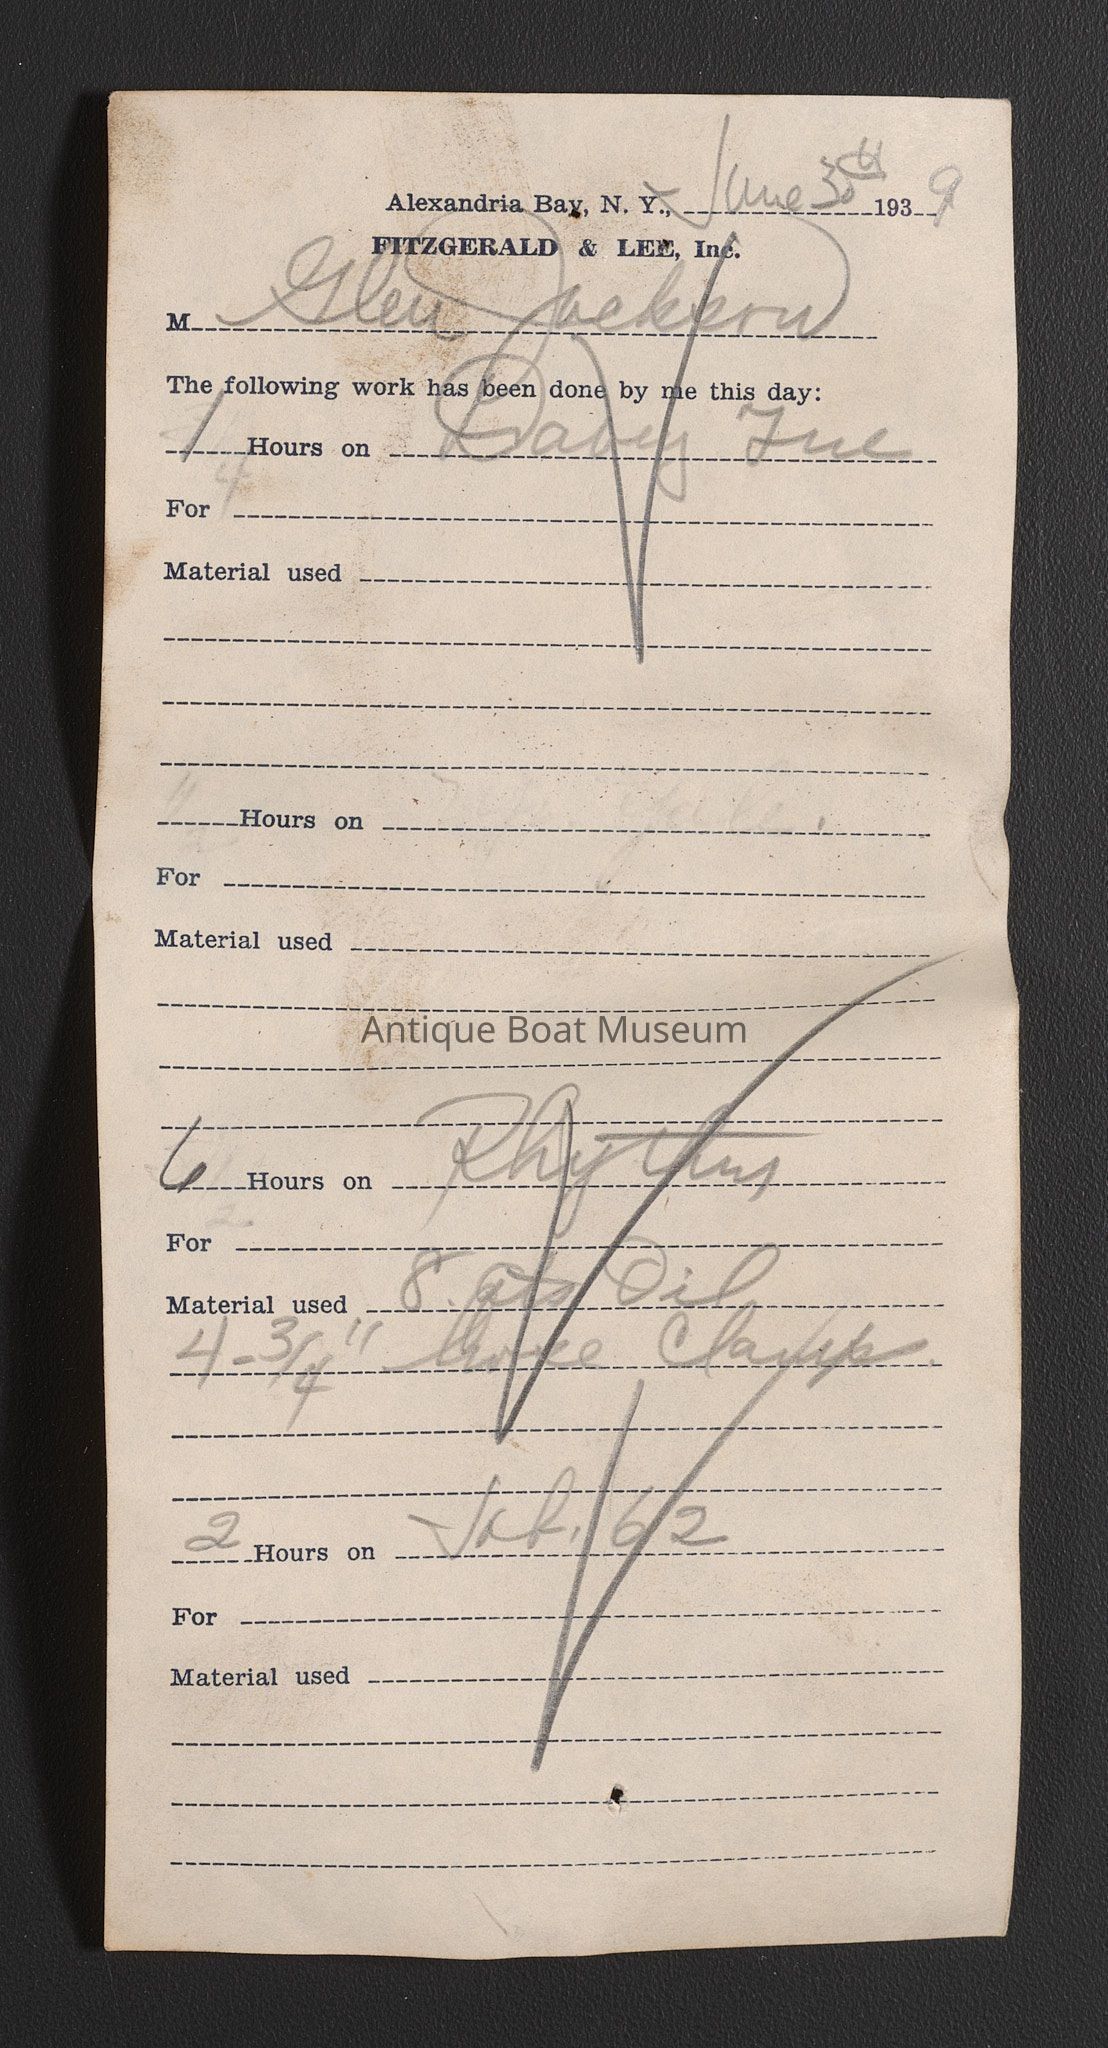 Alexandria Bay, N. Y., June 30th 1939
FITZGERALD & LEE, Inc.
M Glen Jackson
The following work has been done by me this day:
1 Hours on Davey Jue
For
Material used
Hours on
For
Material used
Antique Boat Museum
6 Hours on Rhythm
For
Material used 8 qts Oil
4 - 3/4" hose Clamps.
2 Hours on Job. 62
For
Material used